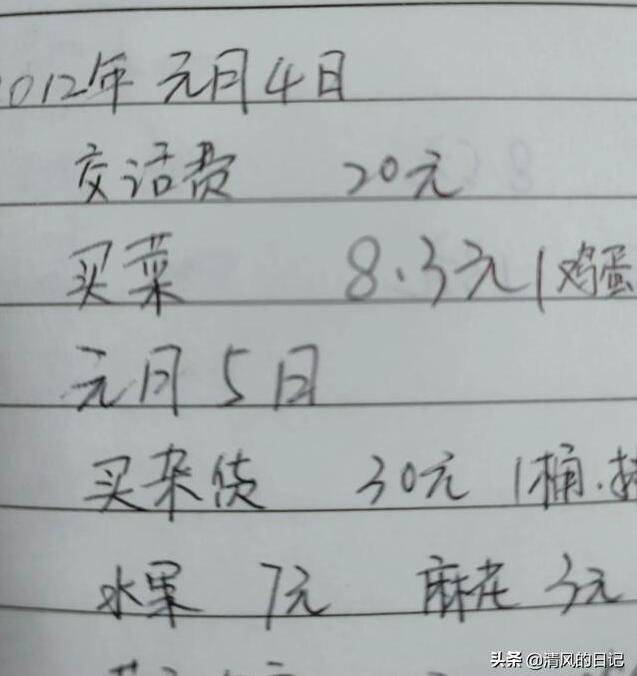 2012年 元月4日
交话费 20元
买菜 8.3元(鸡蛋
元月5日
买杂货 30元(桶.
水果 7元 麻花 3元
头条 @清风的日记